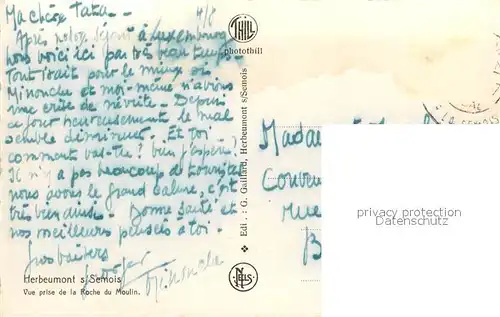 Ma chère Tata - 4/8
Après notre séjour à Luxembourg
nous voici ici par très beau temps -
Tout irait pour le mieux si
Minouche et moi-même n'avions
une crise de névrite - Depuis
ce jour heureusement le mal
semble diminuer. Et toi
comment vas-tu? bien j'espère!
Il n'y a pas beaucoup de touristes
nous avons le grand calme, c'est
très bien ainsi - Bonne santé et
nos meilleurs pensées à toi -
Gros baisers
Herbeumont s/Semois
Vue prise de la Roche du Moulin.
THILL
photothill
Edit. : G. Gaillard, Herbeumont s/Semois
NELS
Madam
Couven
Rue
B
privacy protection
Datenschutz